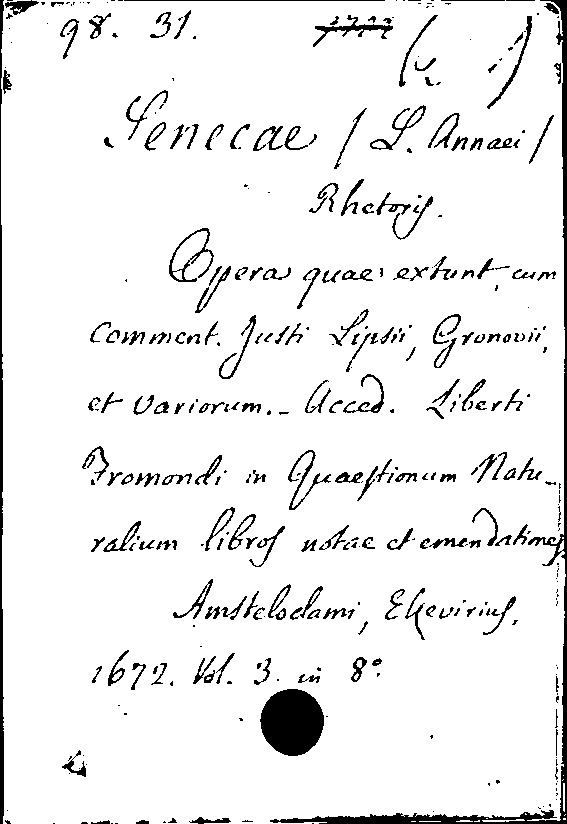 98. 31.
Senecae / L. Annaei /
Rhetoris.
Opera quae extant, cum
comment. Justi Lipsii, Gronovii,
et Variorum. - Acced. Liberti
Fromondi in Quaestionum Natu-
ralium libros notae et emendationes
Amstelodami, Elzevirius,
1672. Vol. 3 in 8°